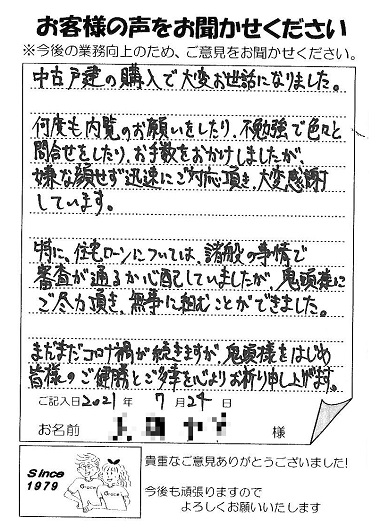 お客様の声をお聞かせください
※今後の業務向上のため、ご意見をお聞かせください。
中古戸建の購入で大変お世話になりました。
何度も内覧のお願いをしたり、不勉強で色々と
問合せをしたり、お手数をおかけしましたが、
嫌な顔せず迅速にご対応頂き、大変感謝
しています。
特に、住宅ローンについては、諸般の事情で
審査が通るか心配していましたが、鬼頭様に
ご尽力頂き、無事に組むことができました。
まだまだコロナ禍が続きますが、鬼頭様をはじめ
皆様のご健勝とご多幸を心よりお祈り申し上げます。
ご記入日 2021 年 7 月 24 日
お名前 様
Since
1979
Grace
Grace
貴重なご意見ありがとうございました!
今後も頑張りますので
よろしくお願いいたします